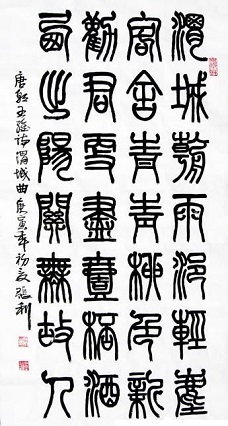 渭城朝雨浥輕塵
客舍青青柳色新
勸君更盡壹桮酒
西出陽關無故人
唐朝王維詩渭城曲庚寅年初夏張利